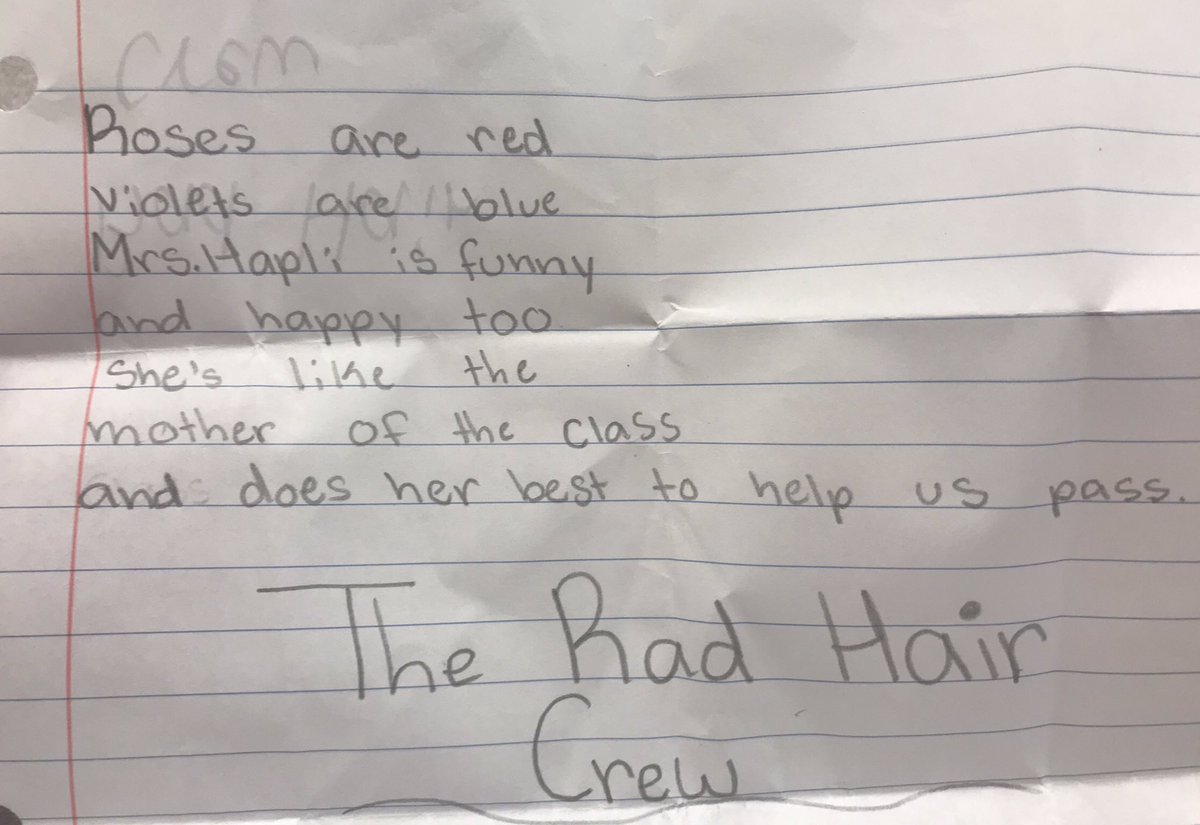 Roses are red
violets are blue
Mrs.Hapli is funny
and happy too
She's like the
mother of the class
and does her best to help us pass.
The Rad Hair
Crew